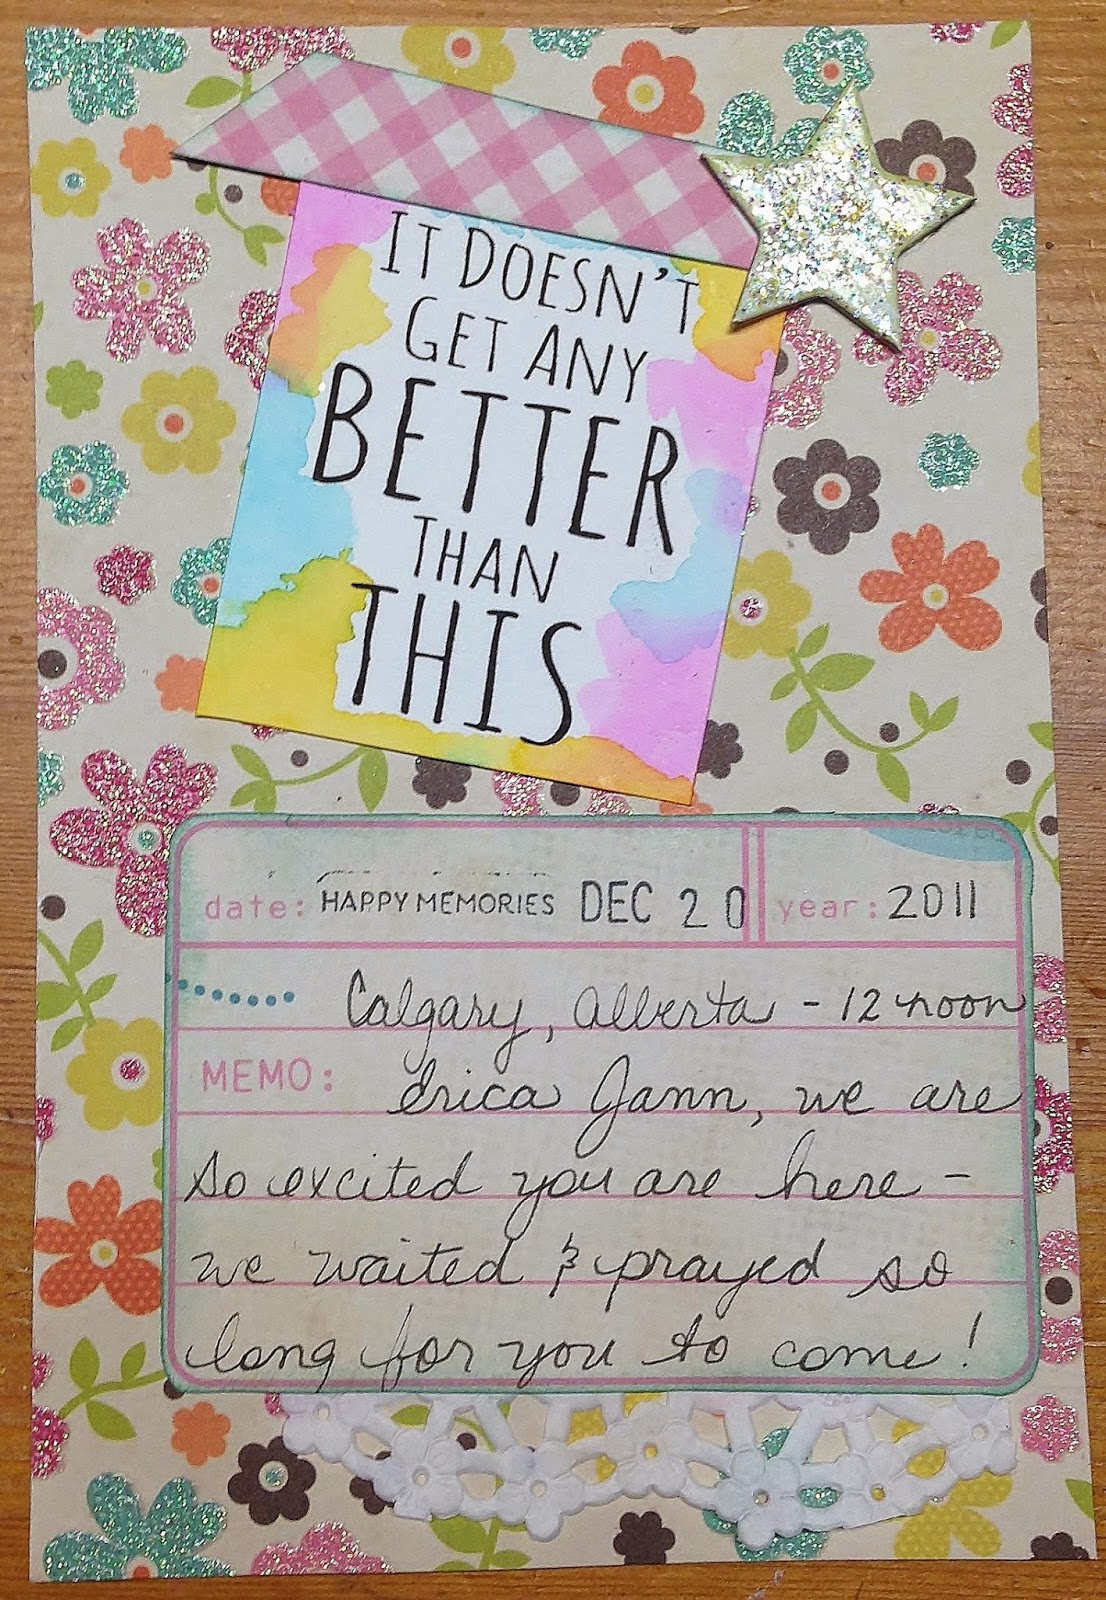 IT DOESN'T
GET ANY
BETTER
THAN
THIS
date: HAPPY MEMORIES DEC 20 year: 2011
Calgary, Alberta - 12 noon
MEMO: Erica Jann, we are
so excited you are here -
we waited & prayed so
long for you to come!